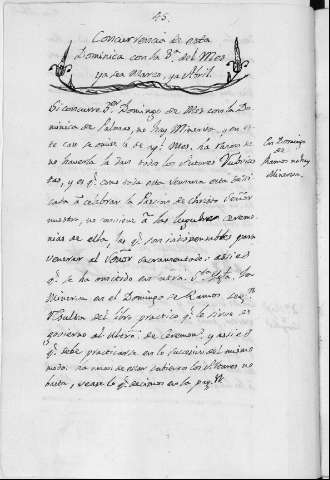 45.
Concurrencia de esta
Dominica con la 3.ª del Mes,
ya sea Marzo, ya Abril.
Si concurre 3.er Domingo de Mes con la Do-
minica de Palmas, no hay Minerva, y en es-
te caso se omite la de aql. Mes, la razon de
no haverla la dan todos los Autores
y es qe. como toda esta semana esta dedi-
cada à celebrar la Passion de Christo Señor
nuestro, no conviene à las lugubres ceremo-
nias de ella, las qe. son indispensables para
venerar al Señor Sacramentado: assi es
qe. se ha omitido en ntra. Sta. Igla. la
Minerva en el Domingo de Ramos segn.
resulta del libro practico qe. le sirve de
govierno al Mtro. de Ceremons. y assi es
qe. debe practicarse en lo sucesivo del mismo
modo: no han de estar cubiertos los Altares no
hasta, vease lo qe. decimos en la pag.
En Domingo
de
Ramos no hay
Minerva.